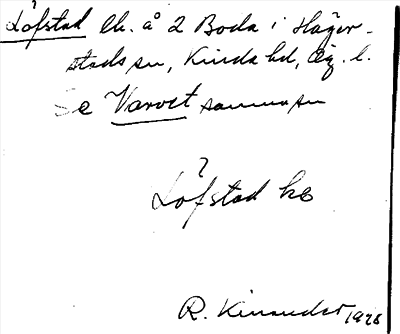 Löfstad lh. å 2 Boda i Häger-
stads sn, Kinda hd, Ög. l.
Se Varvet samma sn
?
Löfstad
R. 1928